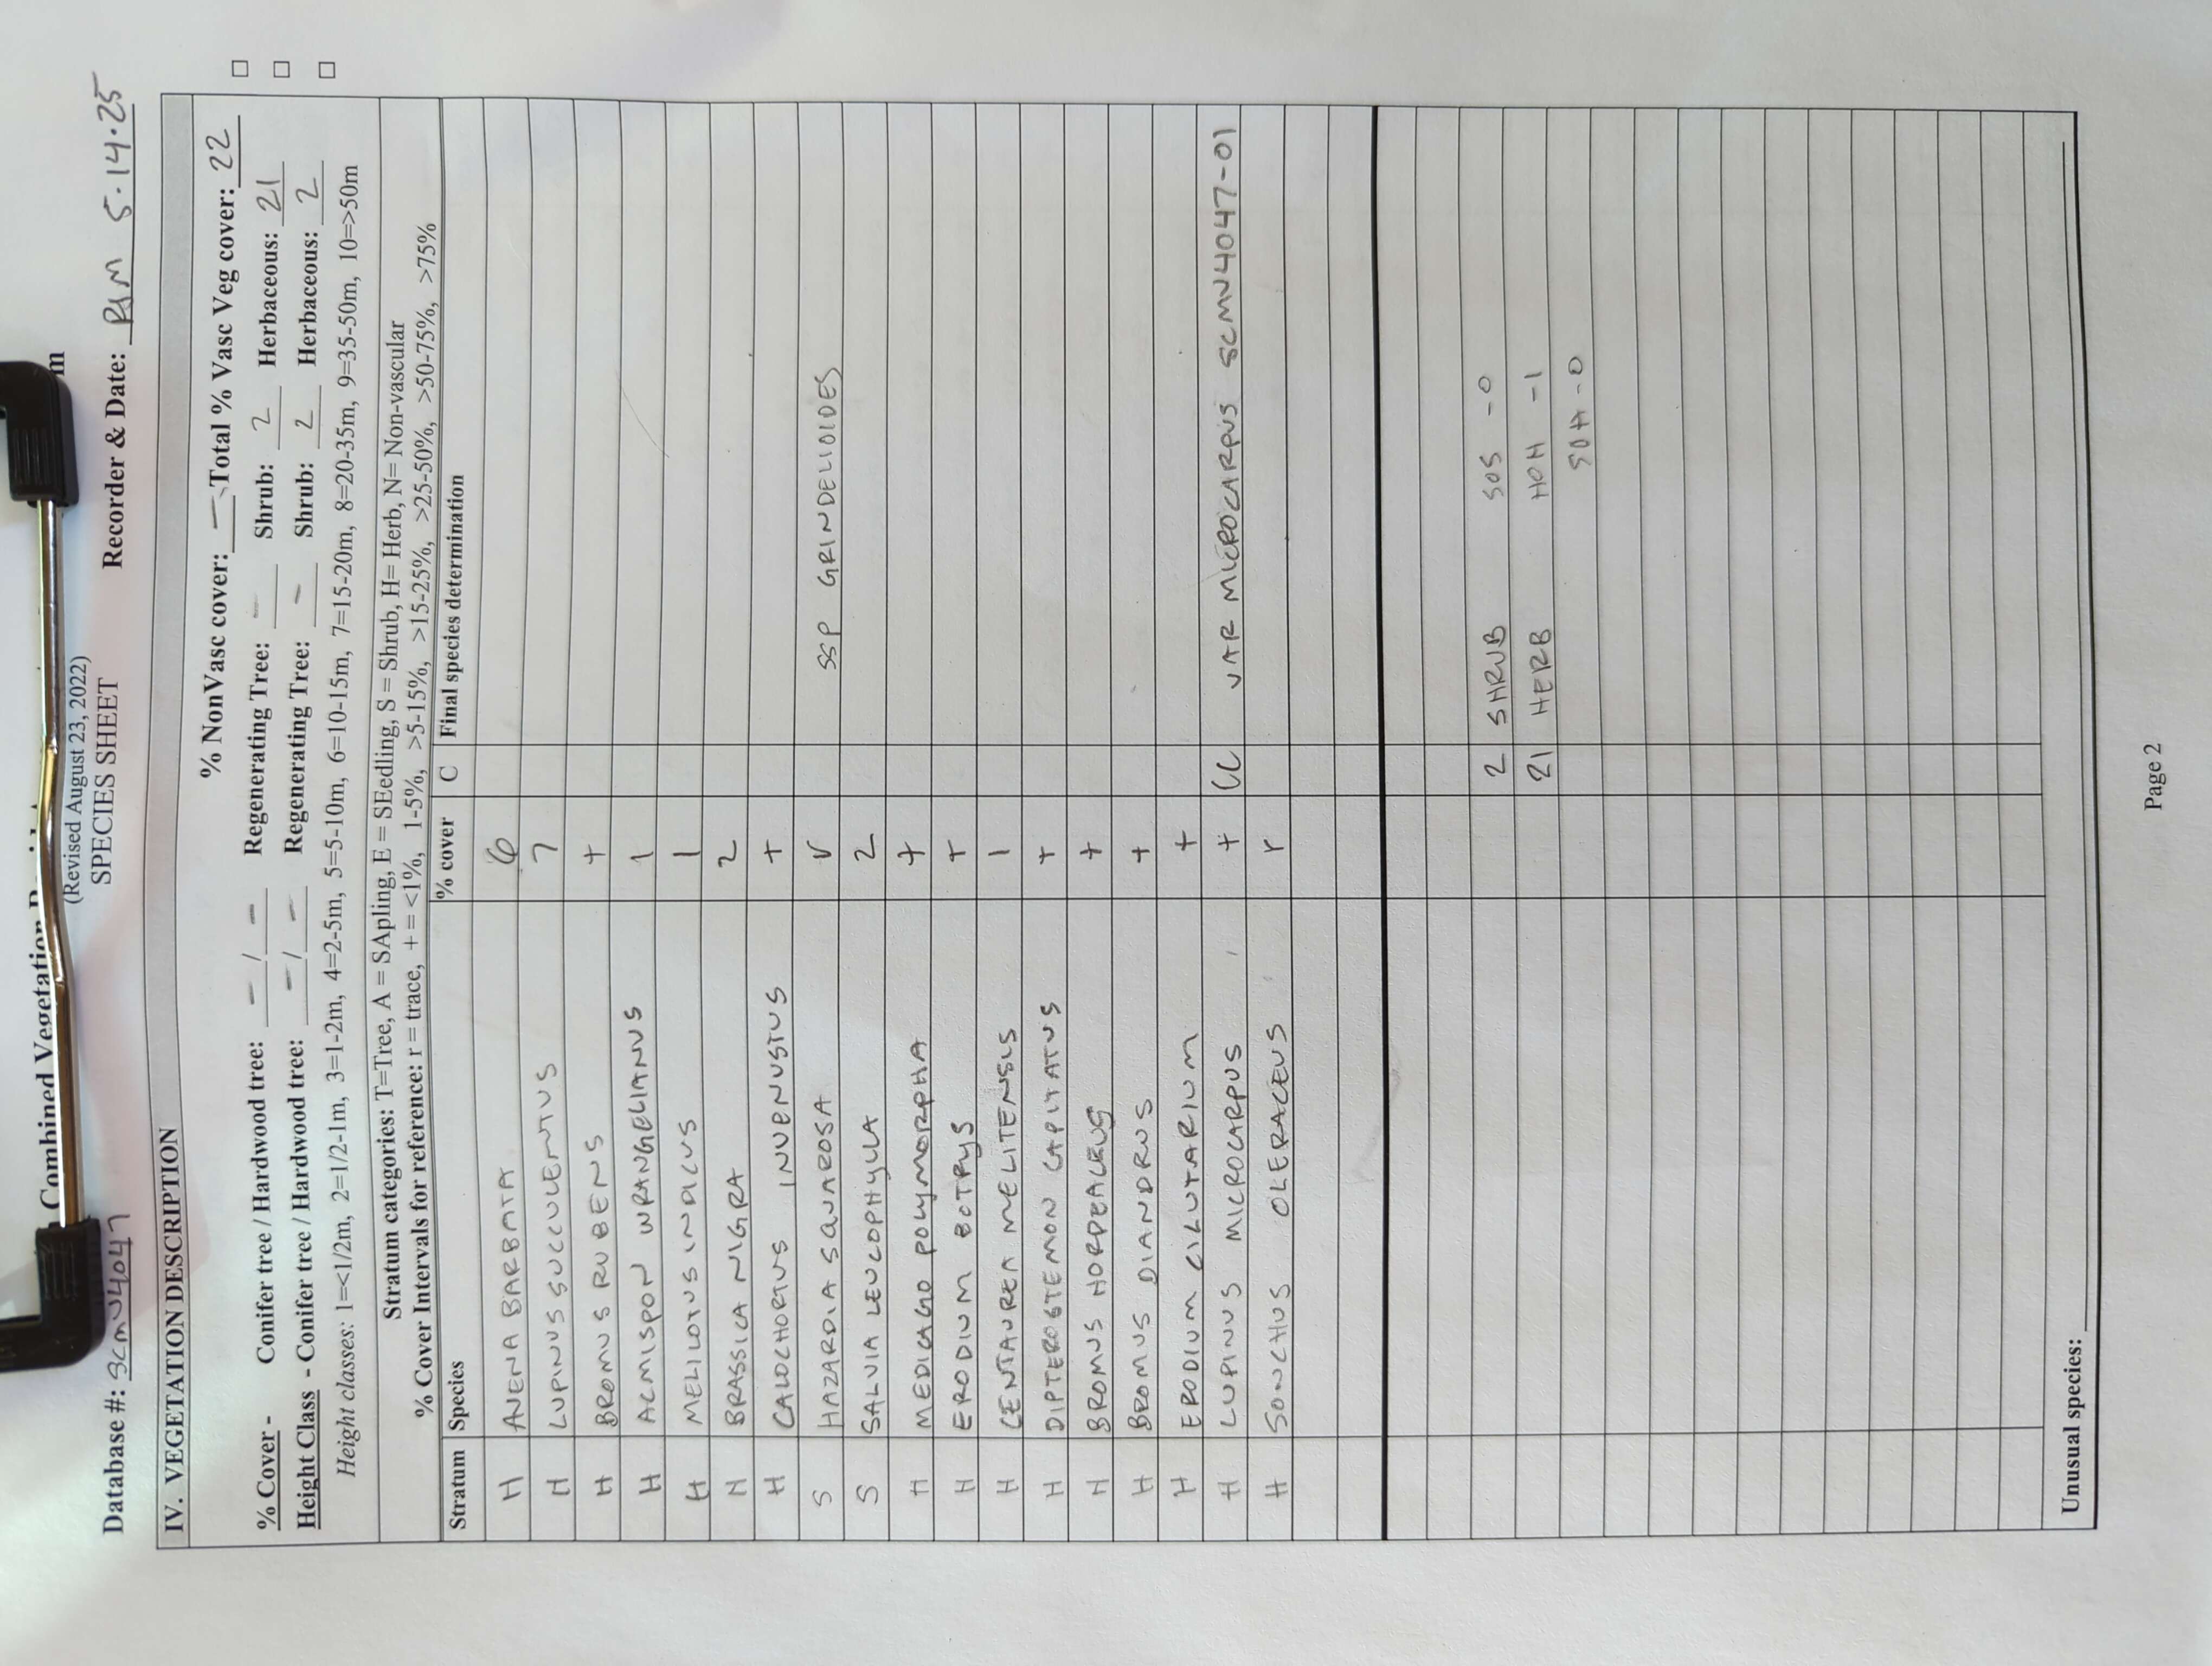 Combined Vegetation
m
(Revised August 23, 2022)
Database #: SCMV4047 SPECIES SHEET Recorder & Date: 5.14.25
IV. VEGETATION DESCRIPTION
% NonVasc cover: — Total % Vasc Veg cover: 22
% Cover - Conifer tree / Hardwood tree: — / — Regenerating Tree: — Shrub: 2 Herbaceous: 21
Height Class - Conifer tree / Hardwood tree: — / — Regenerating Tree: — Shrub: 2 Herbaceous: 2
Height classes: 1=<1/2m, 2=1/2-1m, 3=1-2m, 4=2-5m, 5=5-10m, 6=10-15m, 7=15-20m, 8=20-35m, 9=35-50m, 10=>50m
Stratum categories: T=Tree, A = SApling, E = SEedling, S = Shrub, H= Herb, N= Non-vascular
% Cover Intervals for reference: r = trace, + = <1%, 1-5%, >5-15%, >15-25%, >25-50%, >50-75%, >75%
Stratum Species % cover C Final species determination
H AVENA BARBATA 6
H LUPINUS SUCCULENTUS 7
H BROMUS RUBENS +
H ACMISPON WRANGELIANUS 1
H MELILOTUS INDICUS 1
H BRASSICA NIGRA 2
H CALOCHORTUS INVENUSTUS +
S HAZARDIA SQUARROSA r SSP GRINDELIOIDES
S SALVIA LEUCOPHYLLA 2
H MEDICAGO POLYMORPHA +
H ERODIUM BOTRYS +
H CENTAUREA MELITENSIS 1
H DIPTEROSTEMON CAPITATUS +
H BROMUS HORDEACEUS +
H BROMUS DIANDRUS +
H ERODIUM CICUTARIUM +
H LUPINUS MICROCARPUS + CC VAR MICROCARPUS SCMV4047-01
H SONCHUS OLERACEUS r
2 SHRUB SOS -0
21 HERB HOH -1
SOH -0
Unusual species:
Page 2